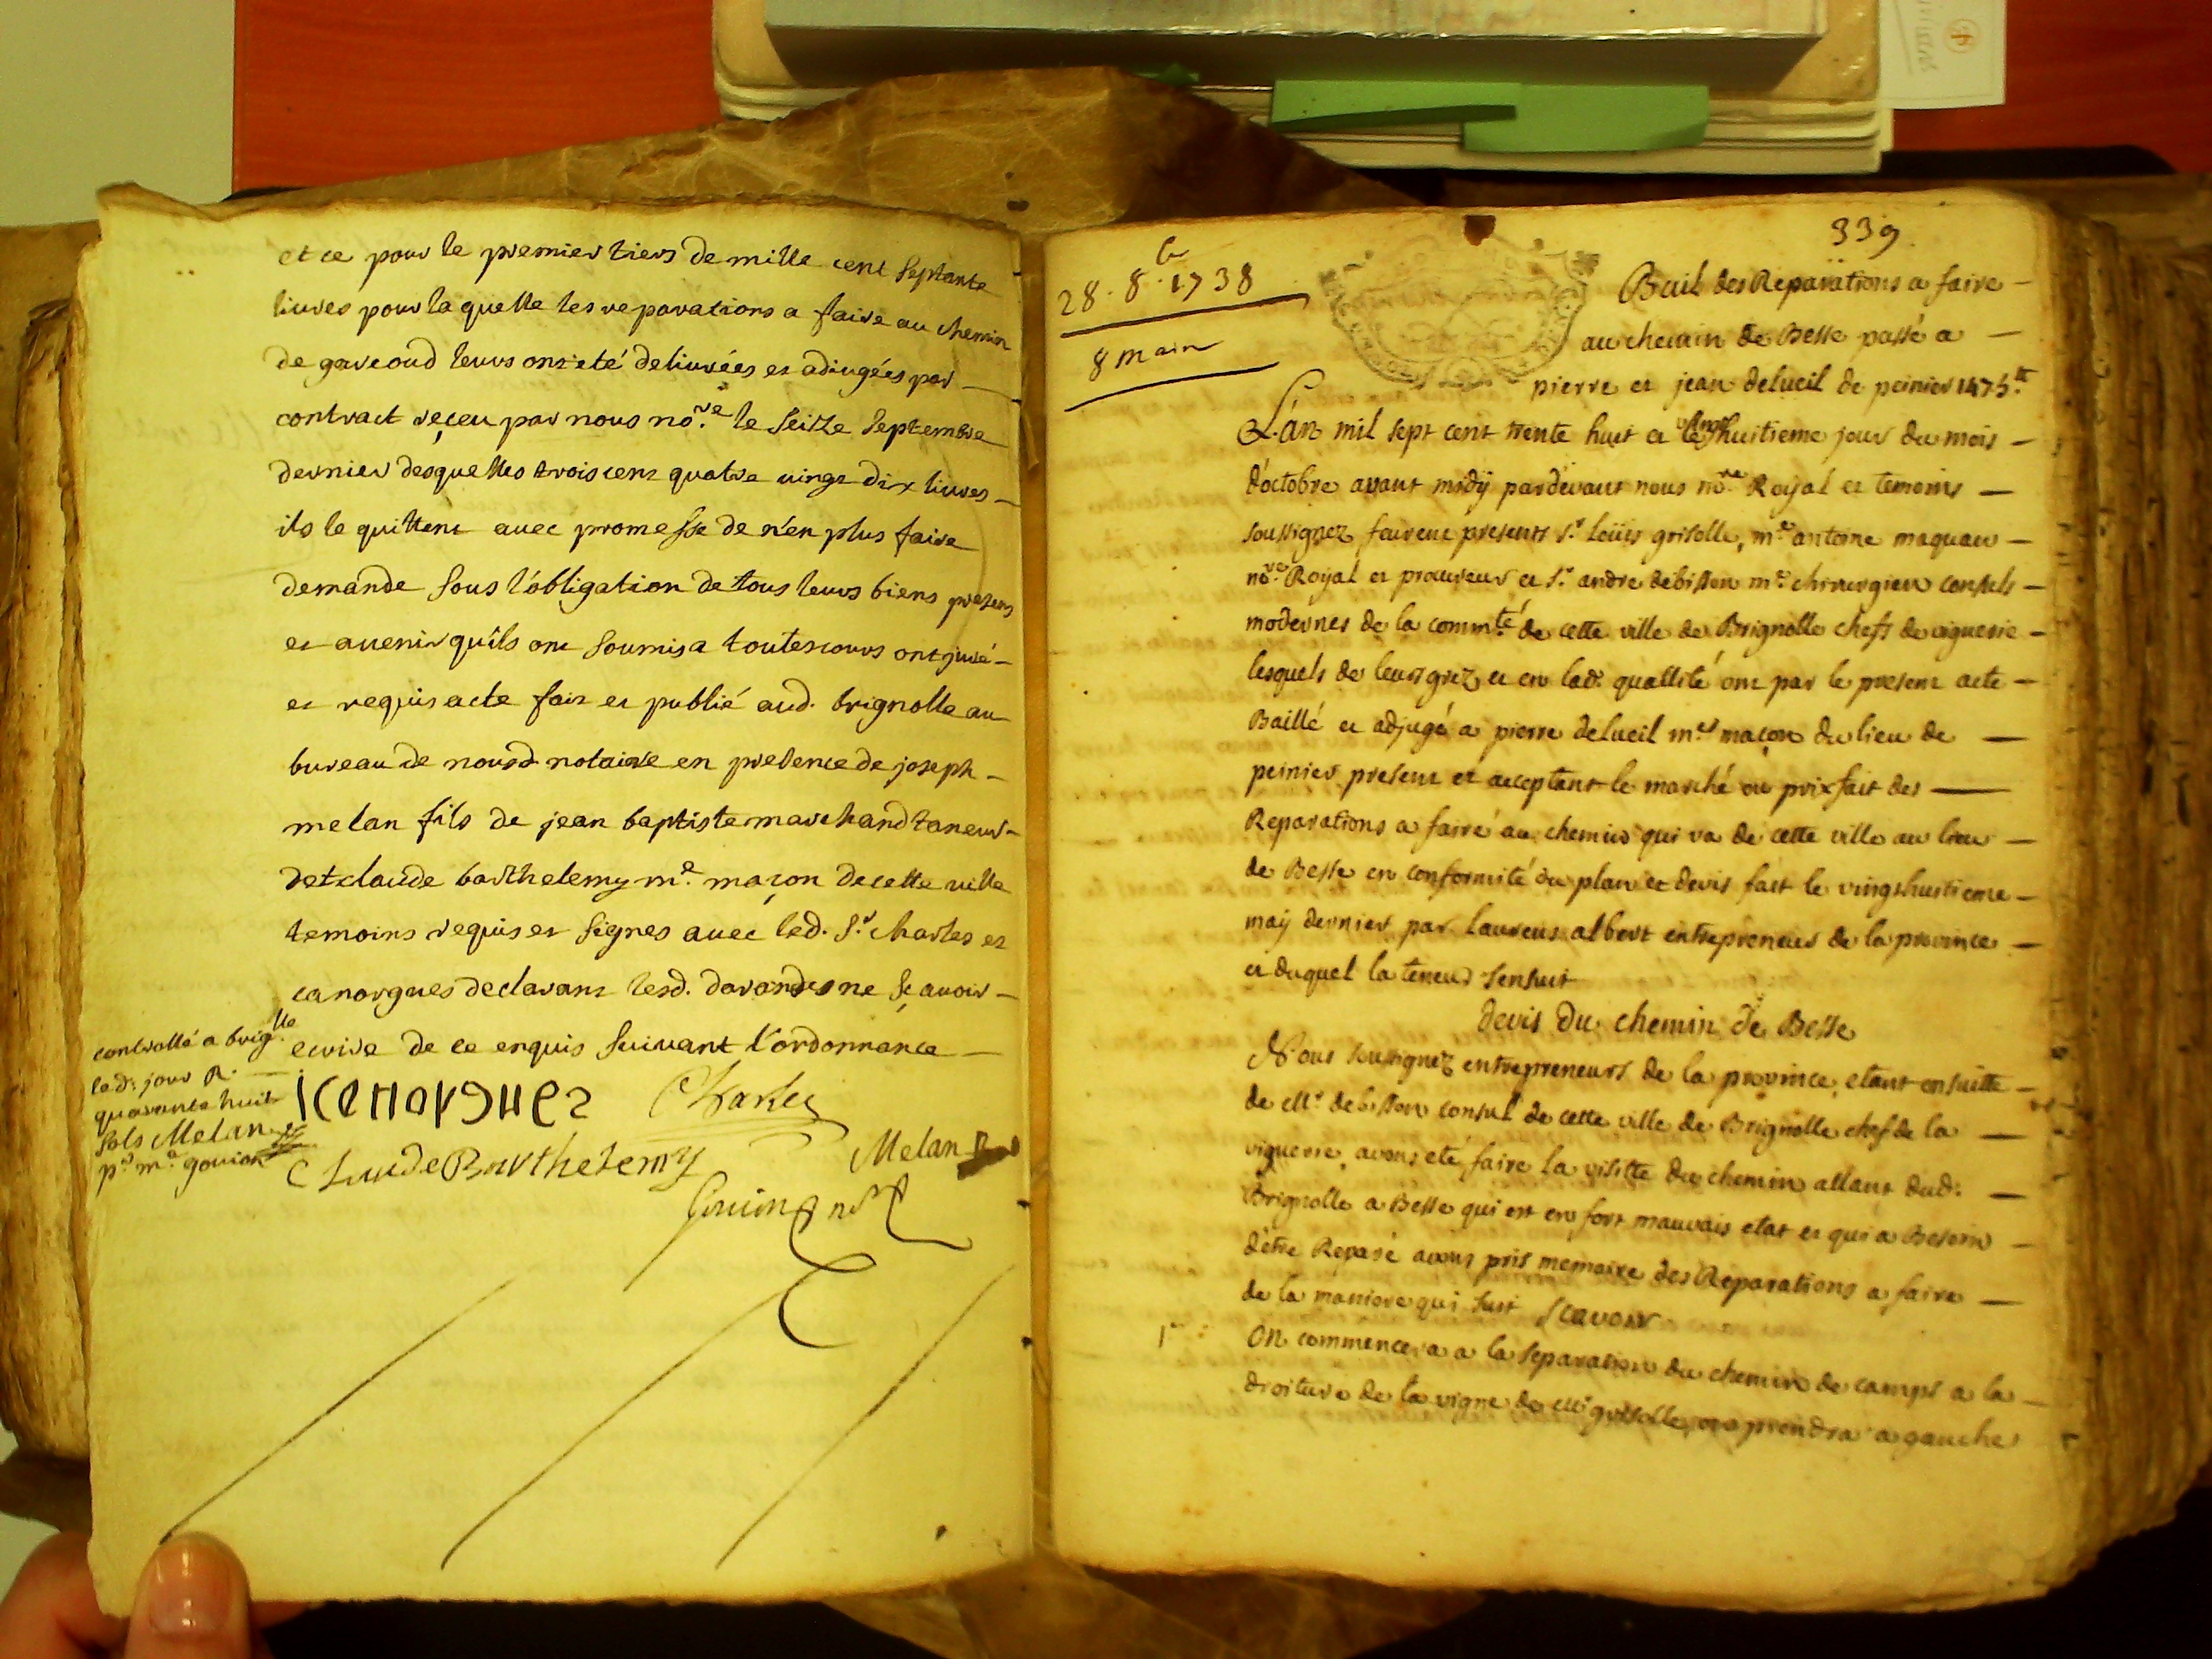 et ce pour le premier tiers de mille cent septante
livres pour laquelle les reparations a faire au chemin
de gareoud leurs ont eté delivrées et adiugées par
contract reçeu par nous no.re le seitze septembre
dernier desquelles trois cens quatre vingt dix livres
ils le quittent avec promesse de n'en plus faire
demande sous l'obligation de tous leurs biens presens
et avenir qu'ils ont soumis a toutes cours ont juré
et requis acte fait et publié aud. brignolle au
bureau de nousd. notaire en presence de joseph
melan fils de jean baptiste marchand taneur
et claude barthelemy m.e maçon de cette ville
temoins requis et signes avec led. S.r charles et
canorgues declarant lesd. ne sçavoir
ecrire de ce enquis suivant l'ordonnance
controllé a brig.lle
led. jour R.
quarante huit
sols Melan
canorgues Charles
Claude Barthelemy Melan
339
28. 8.bre 1738
8 main
Bail des Reparations a faire
au chemin de Besse passé a
pierre et jean delueil de peinier 1475.tt
L'an mil sept cent trente huit et le vingt huitieme jour du mois
d'octobre avant midÿ pardevant nous no.re Roÿal et temoins
soussignez feurent presents s.r Loüis griselle, m.e antoine maquan
no.re Roÿal et procureur et s.r andre debisson m.e chirurgien consuls
modernes de la comm.té de cette ville de Brignolle chefs de viguerie
lesquels de leurs grez et en lad. quallité ont par le present acte
Baillé et adjugé a pierre delueil m.e maçon du lieu de
peinier present et acceptant le marché ou prix fait des
Reparations a faire au chemin qui va de cette ville au lieu
de Besse en conformité du plan et devis fait le vingt huitieme
maÿ dernier par laurens albert entrepreneur de la province
et duquel la teneur sensuit
devis du chemin de Besse
Nous soussignez entrepreneurs de la province, etant ensuitte
de M.r debisson consul de cette ville de Brignolle chef de la
viguerie, avons eté faire la visitte du chemin allant dud.
Brignolle a Besse qui est en fort mauvais etat et qui a Besoin
d'être Reparé avons pris memoire des Reparations a faire
de la maniere qui suit scavoir
1.r On commencera a la separation du chemin de camps a la
droiture de la vigne de M.r griselle, on prendra a gauche